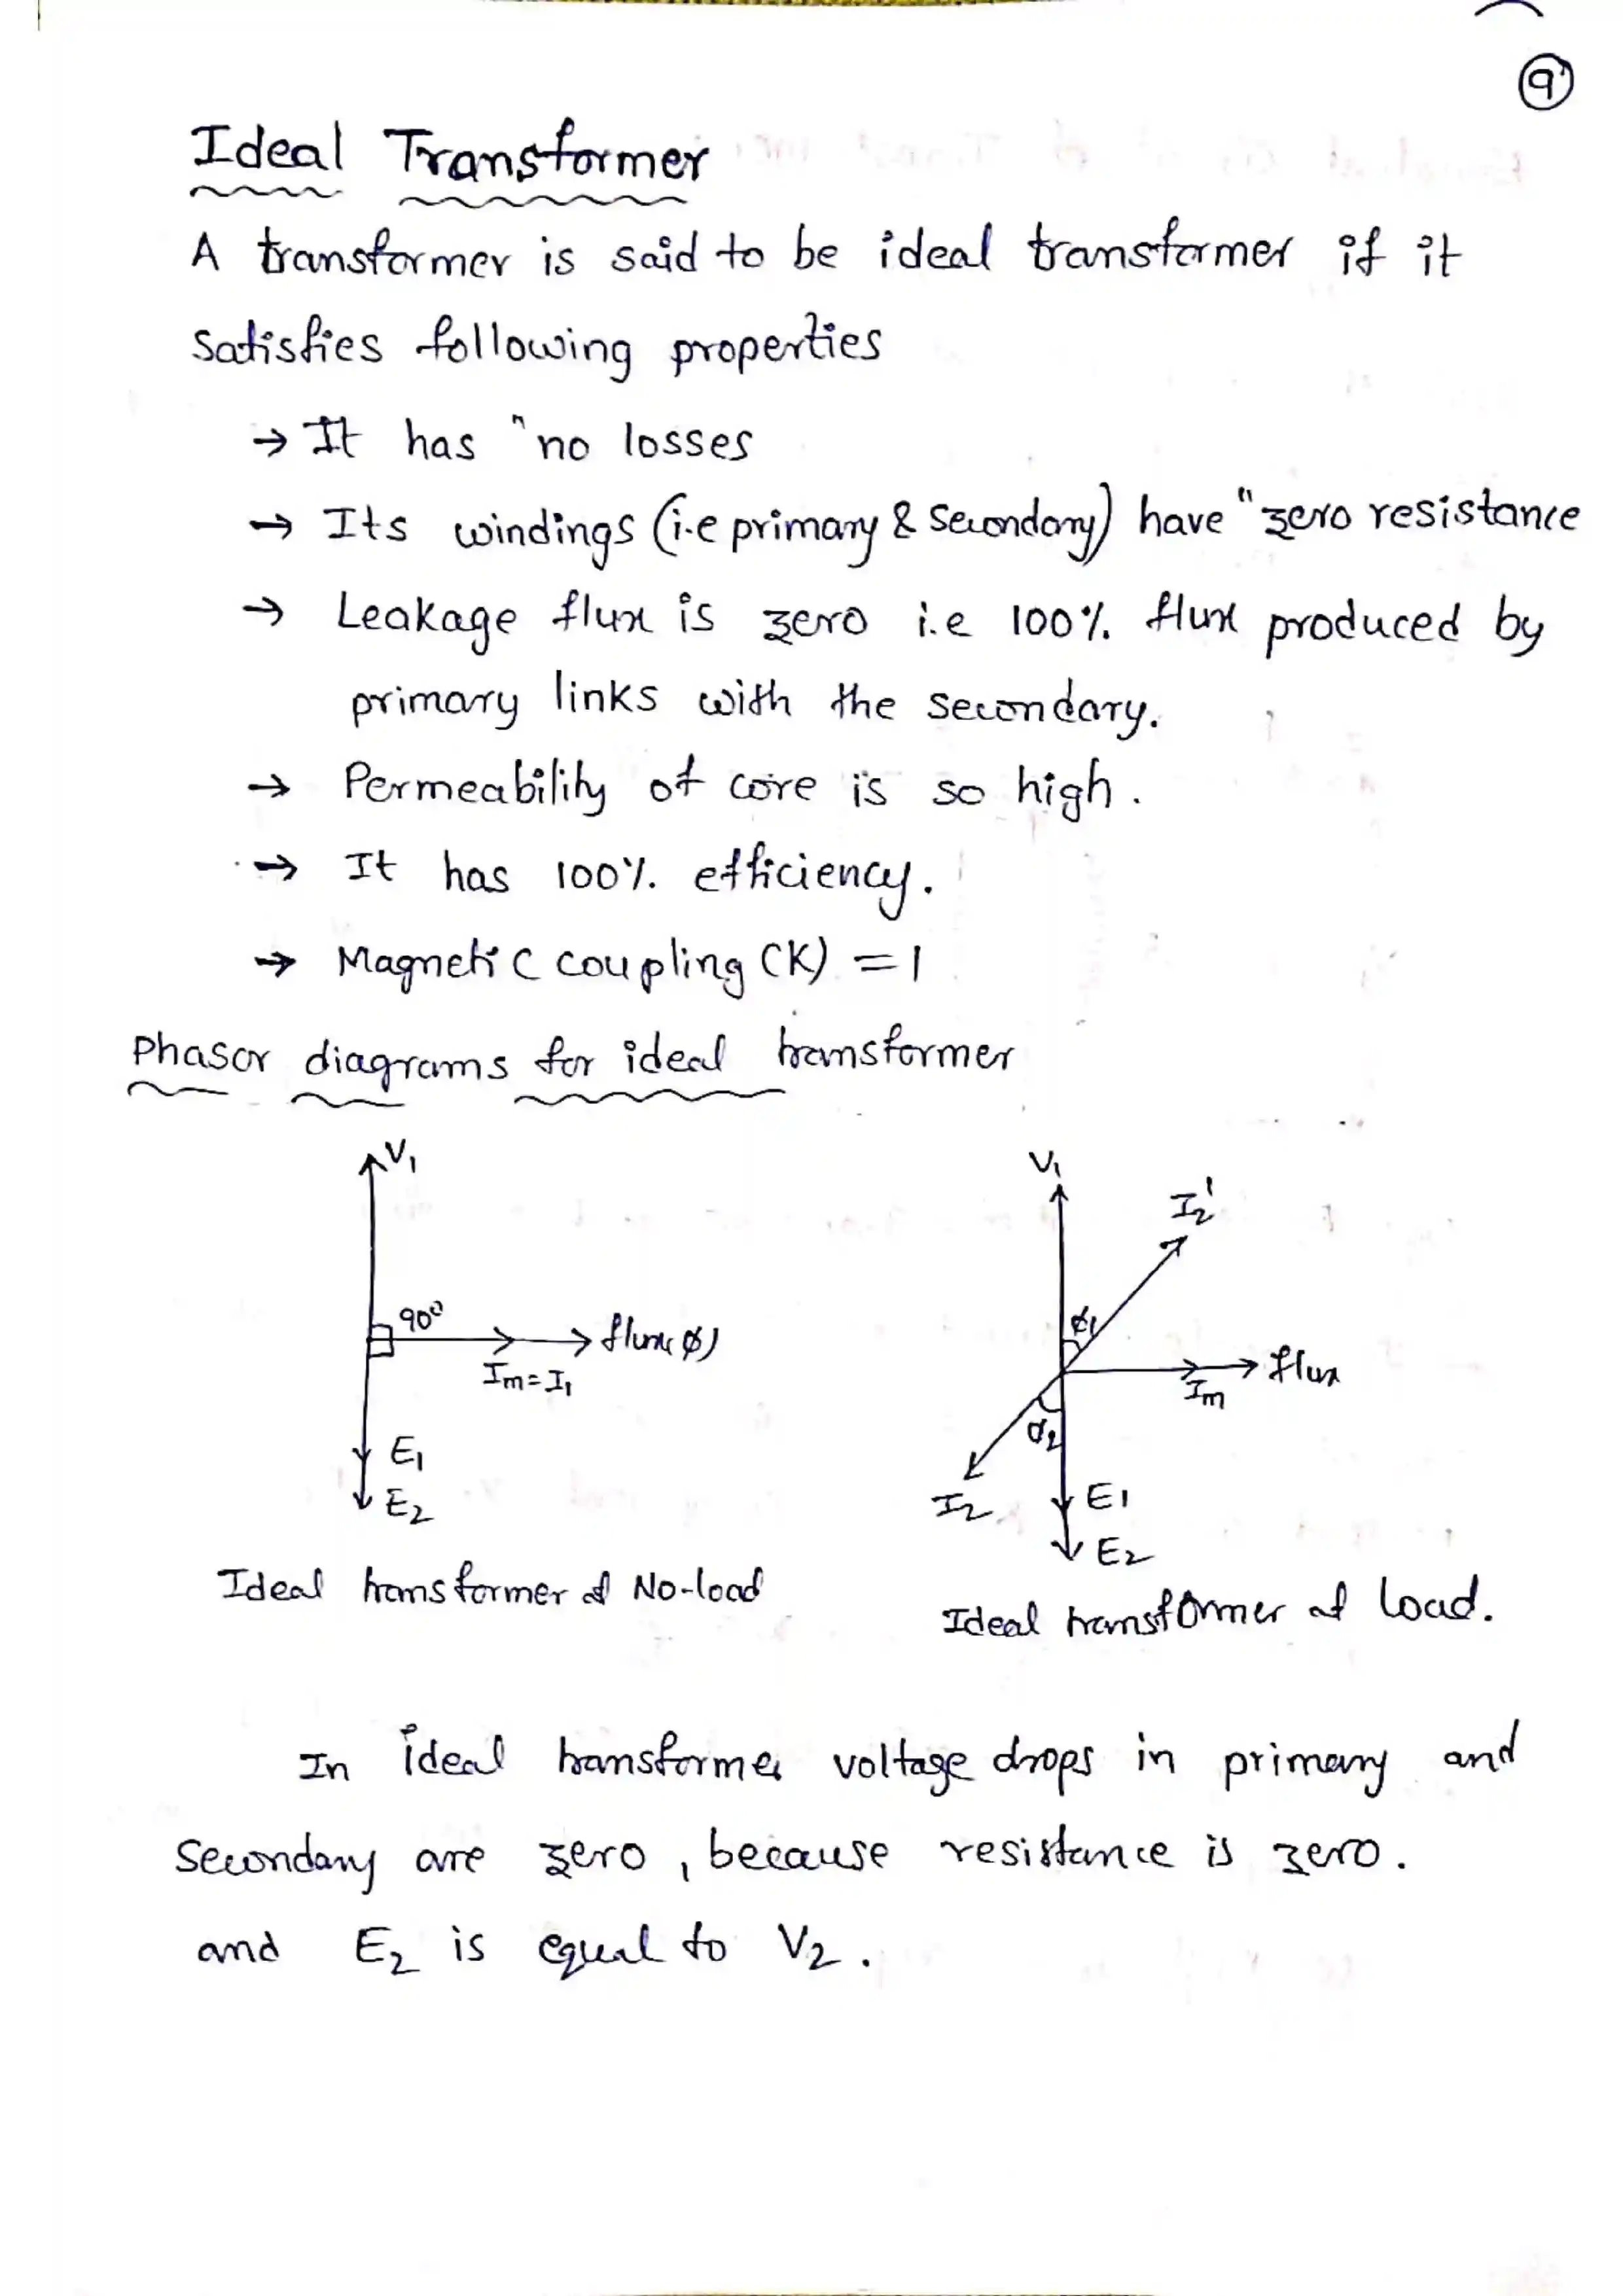 9
Ideal Transformer
A transformer is said to be ideal transformer if it
satisfies following properties
→ It has "no losses
→ Its windings (i.e primary & secondary) have "zero resistance
→ Leakage flux is zero i.e 100% flux produced by
primary links with the secondary.
→ Permeability of core is so high.
→ It has 100% efficiency.
→ Magnetic coupling (K) = 1
Phasor diagrams for ideal transformer
V₁
90°
flux(ϕ)
Im = I₁
E₁
E₂
Ideal transformer at No-load
V₁
I₂'
ϕ₁
flux
Im
ϕ₂
I₂
E₁
E₂
Ideal transformer at load.
In ideal transformer voltage drops in primary and
secondary are zero, because resistance is zero.
and E₂ is equal to V₂.